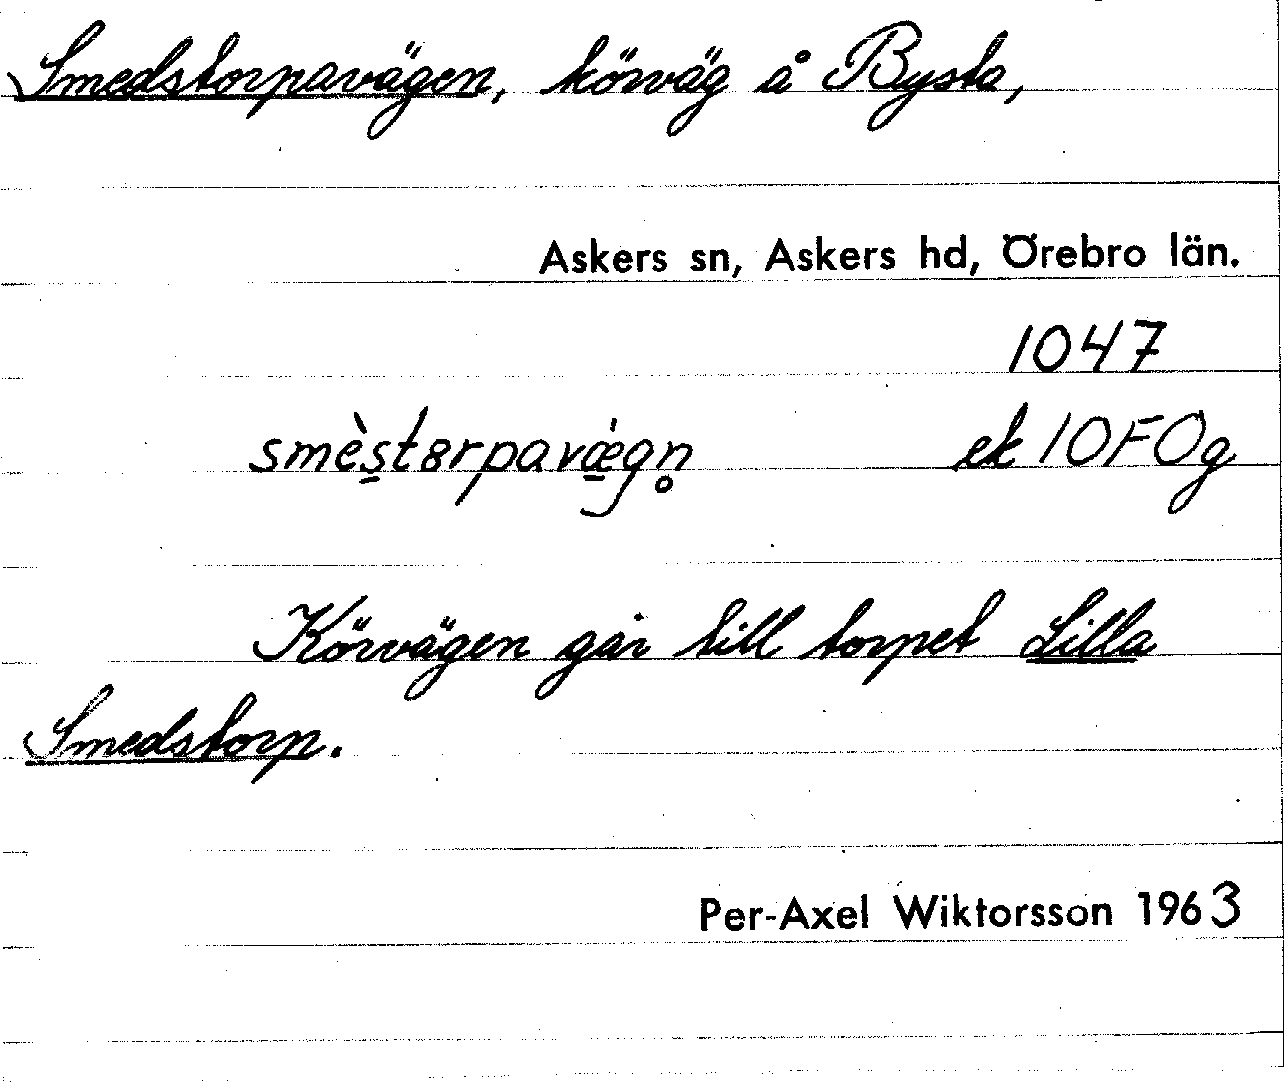 Smedstorpavägen, körväg å Bysta,
Askers sn, Askers hd, Örebro län.
1047
smès̱tȣrpavæ̱gn̥ ek 10FÖg
Körvägen går till torpet Lilla
Smedstorp.
Per-Axel Wiktorsson 1963